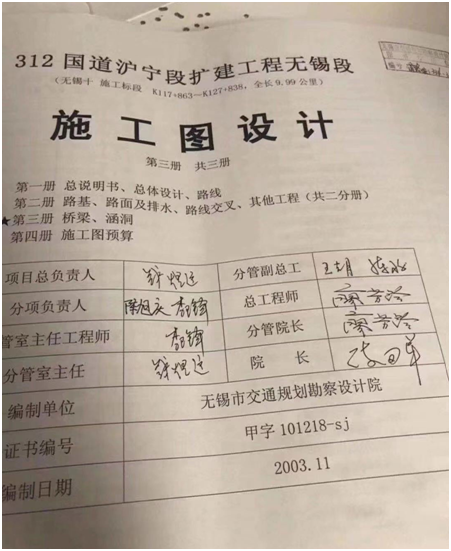 312 国道沪宁段扩建工程无锡段
(无锡十 施工标段 K117+863~K127+838, 全长 9.99 公里)
施工图设计
第三册 共三册
第一册 总说明书、总体设计、路线
第二册 路基、路面及排水、路线交叉、其他工程(共二分册)
★第三册 桥梁、涵洞
第四册 施工图预算
项目总负责人 分管副总工
分项负责人 总工程师
管室主任工程师 分管院长
分管室主任 院 长
编制单位 无锡市交通规划勘察设计院
证书编号 甲字 101218-sj
编制日期 2003.11